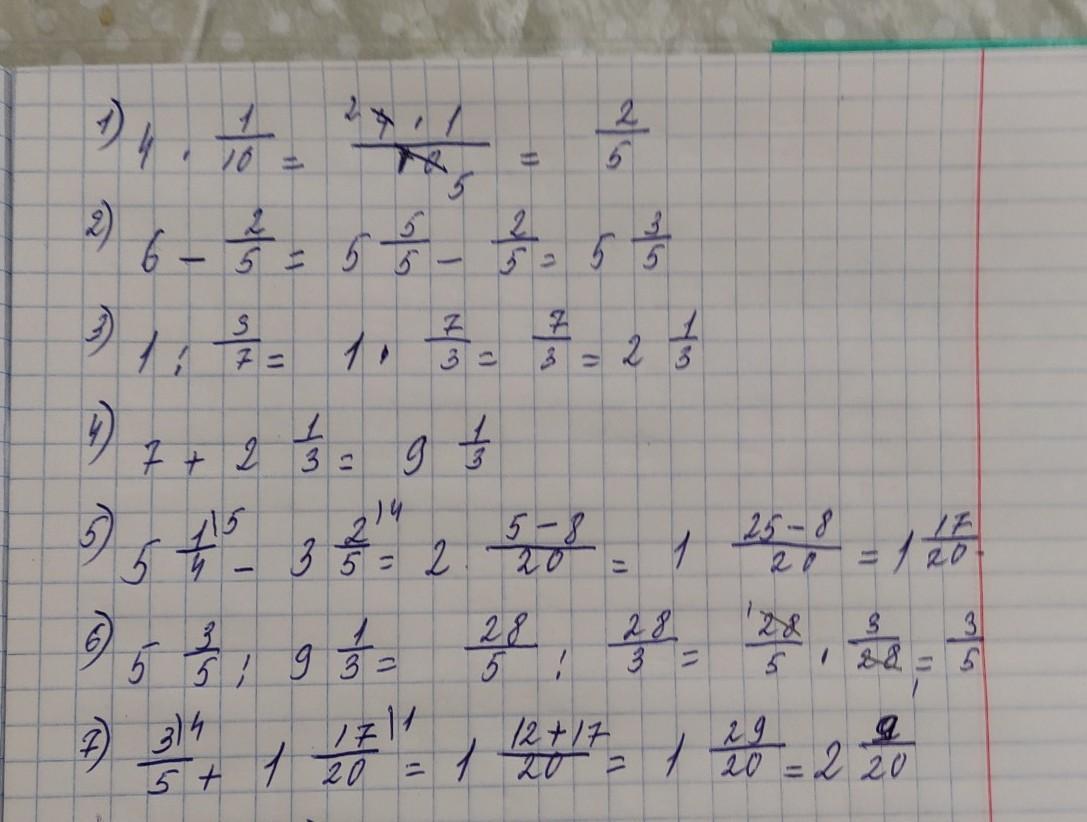 1) 4 · 1/10 = 4 · 1/10 = 2/5
2) 6 − 2/5 = 5 5/5 − 2/5 = 5 3/5
3) 1 : 3/7 = 1 · 7/3 = 7/3 = 2 1/3
4) 7 + 2 1/3 = 9 1/3
5) 5 1/4 \5 − 3 2/5 \4 = 2 (5 − 8)/20 = 1 (25 − 8)/20 = 1 17/20
6) 5 3/5 : 9 1/3 = 28/5 : 28/3 = 28/5 · 3/28 = 3/5
7) 3/5 \4 + 1 17/20 \1 = 1 (12 + 17)/20 = 1 29/20 = 2 9/20